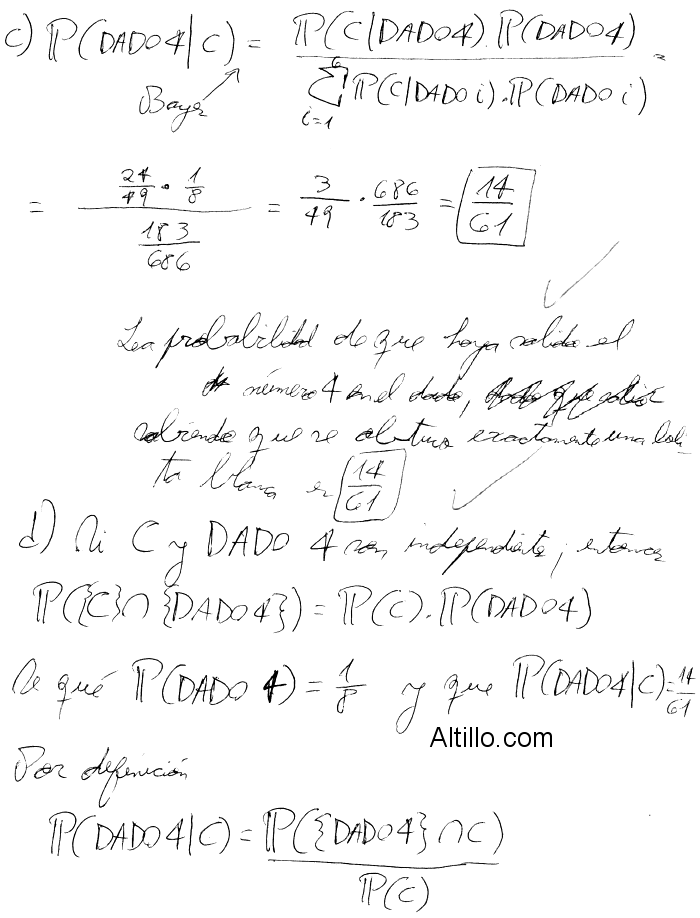 c) ℙ(DADO4|C) = ℙ(C|DADO4).ℙ(DADO4) / ∑_{i=1}^{6} ℙ(C|DADO i).ℙ(DADO i) =
Bayes
= (24/49 · 1/8) / (183/686) = 3/49 · 686/183 = 14/61
La probabilidad de que haya salido el
número 4 en el dado,
sabiendo que se obtuvo exactamente una boli-
ta blanca es 14/61
d) Si C y DADO 4 son independientes, entonces
ℙ({C}∩{DADO4}) = ℙ(C).ℙ(DADO4)
Se qué ℙ(DADO 4) = 1/8 y que ℙ(DADO4|C) = 14/61
Altillo.com
Por definición
ℙ(DADO4|C) = ℙ({DADO4}∩C) / ℙ(C)